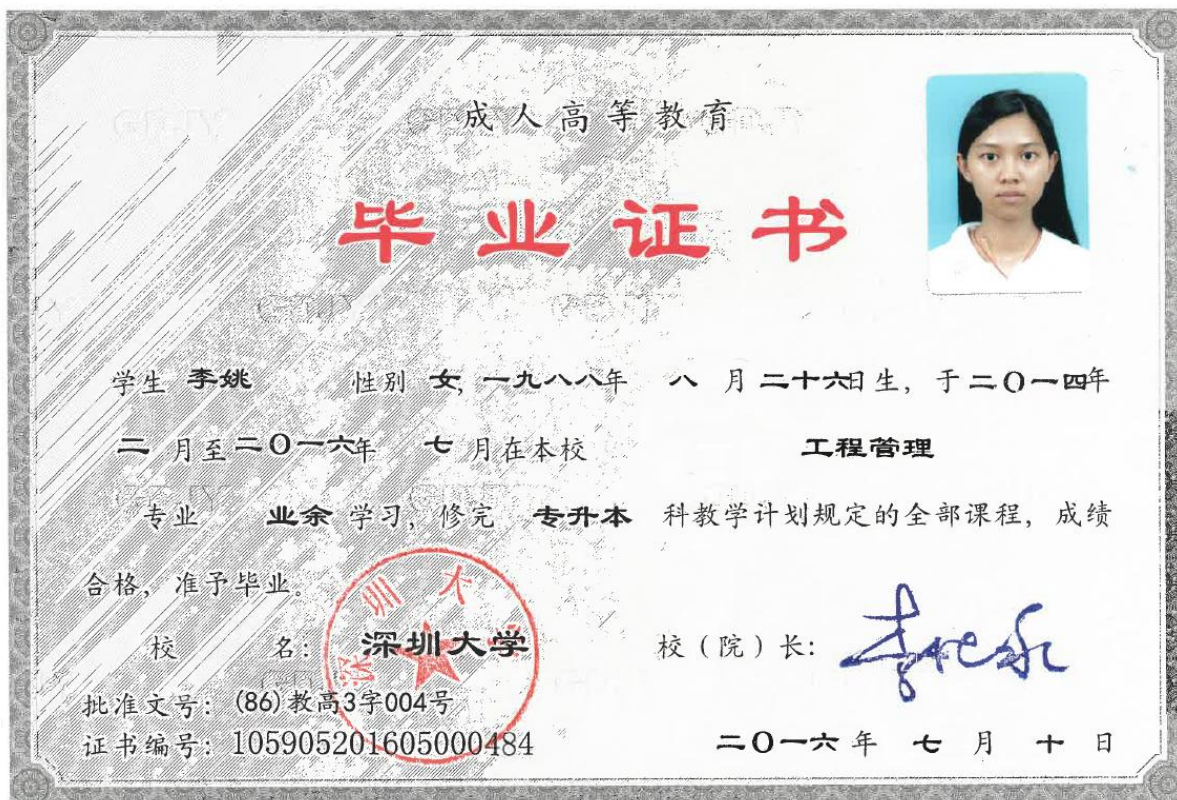 成人高等教育
毕业证书
学生 李姚 性别 女, 一九八八年 八 月 二十六日生, 于二〇一四年
二 月至二〇一六年 七 月在本校 工程管理
专业 业余 学习, 修完 专升本 科教学计划规定的全部课程, 成绩
合格, 准予毕业。
校 名: 深圳大学 校(院)长:
深圳大
批准文号: (86)教高3字004号
证书编号: 105905201605000484
二〇一六年 七 月 十 日